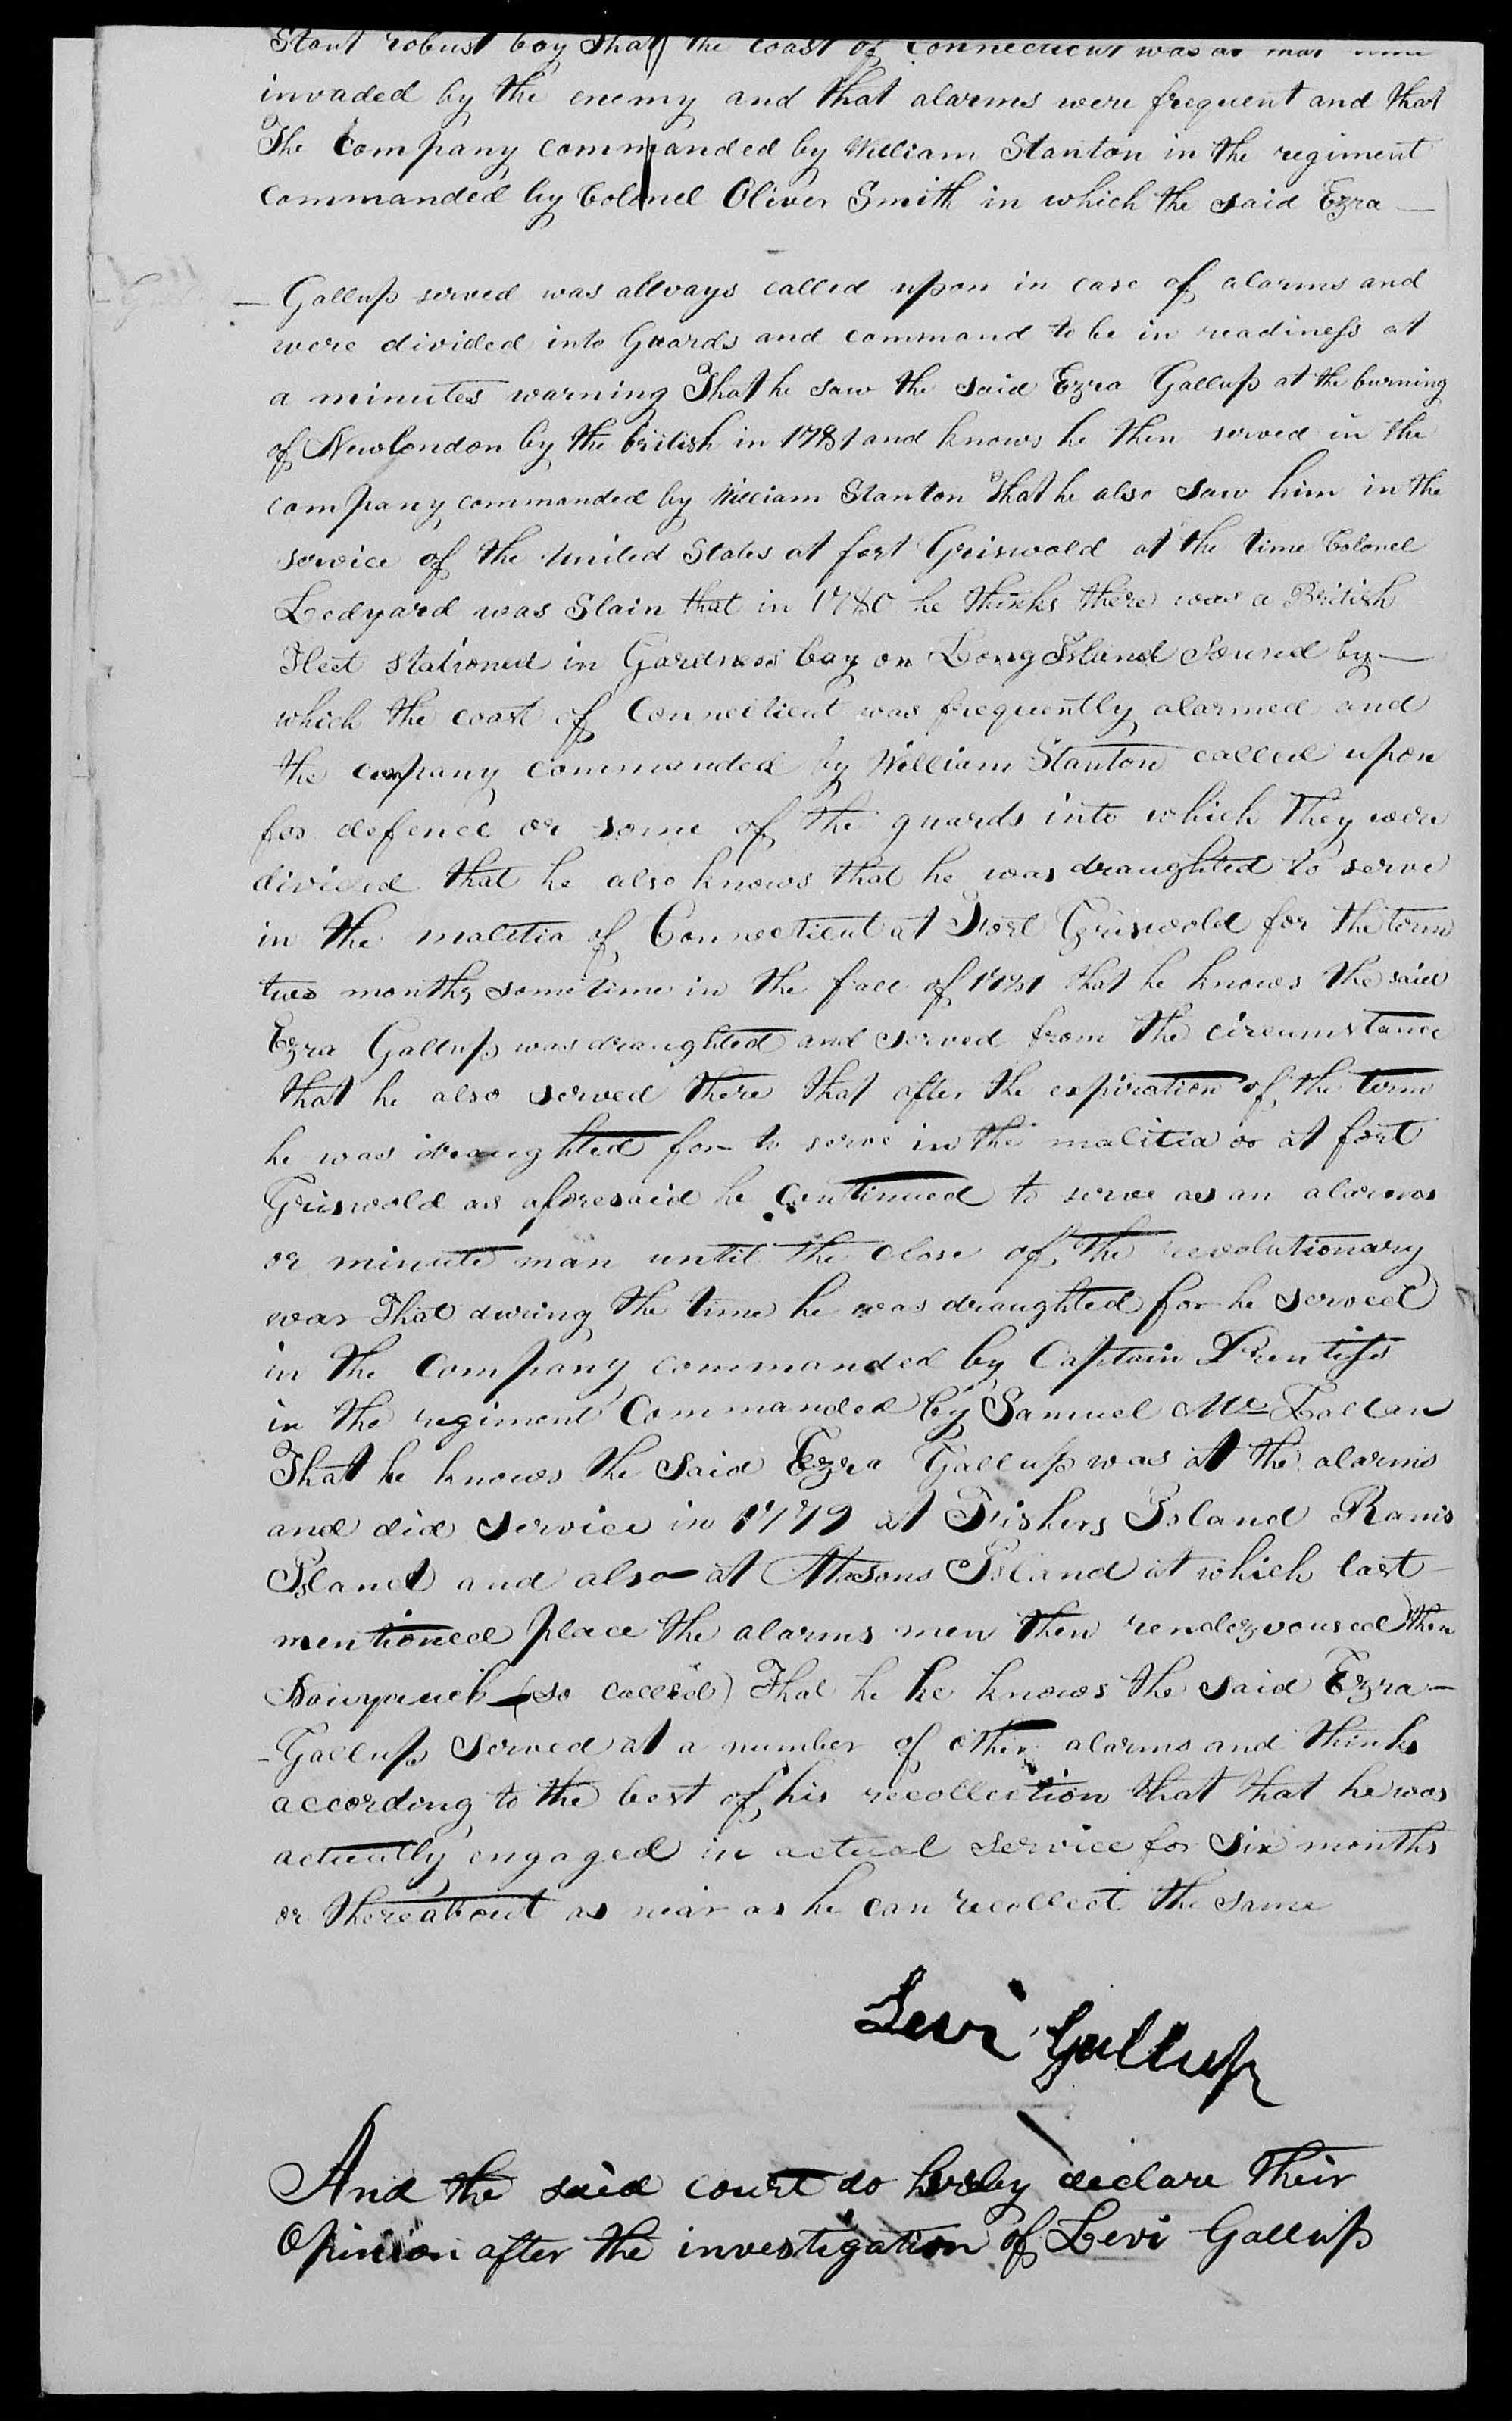 Stout robust boy That the coast of Connecticut was at that time
invaded by the enemy and that alarms were frequent and that
The Company commanded by William Stanton in the regiment
commanded by Colonel Oliver Smith in which the said Ezra —
— Gallup served was allways called upon in case of alarms and
were divided into Guards and command to be in readiness at
a minutes warning That he saw the said Ezra Gallup at the burning
of Newlondon by the british in 1781 and knows he then served in the
company commanded by William Stanton That he also saw him in the
service of the United States at fort Griswold at the time Colonel
Ledyard was Slain that in 1780 he thinks there was a British
Fleet stationed in Gardners bay on Long Island Sound by —
which the coast of Connecticut was frequently alarmed and
the company commanded by William Stanton called upon
for defence or some of the guards into which They were
divided that he also knows that he was draughted to serve
in the malitia of Connecticut at Fort Griswold for the term
two months sometime in the fall of 1781 that he knows the said
Ezra Gallup was draughted and served from the circumstance
that he also served there that after the expiration of the term
he was draughted for to serve in the malitia or at fort
Griswold as aforesaid he Continued to serve as an alarms
or minute man until the close of the revolutionary
war That during the time he was draughted for he served
in the Company commanded by Captain Prentiss
in the regiment Commanded by Samuel Mc Lallan
That he knows the said Ezra Gallup was at the alarms
and did service in 1779 at Fishers Island Rams
Island and also at Masons Island at which last —
mentioned place the alarms men then rendezvoused then
(so called) That he he knows the said Ezra —
- Gallup Served at a number of other alarms and thinks
according to the best of his recollection that that he was
actually engaged in actual service for Six months
or thereabout as near as he can recollect the same
Levi Gallup
And the said court do hereby declare their
Opinion after the investigation of Levi Gallup